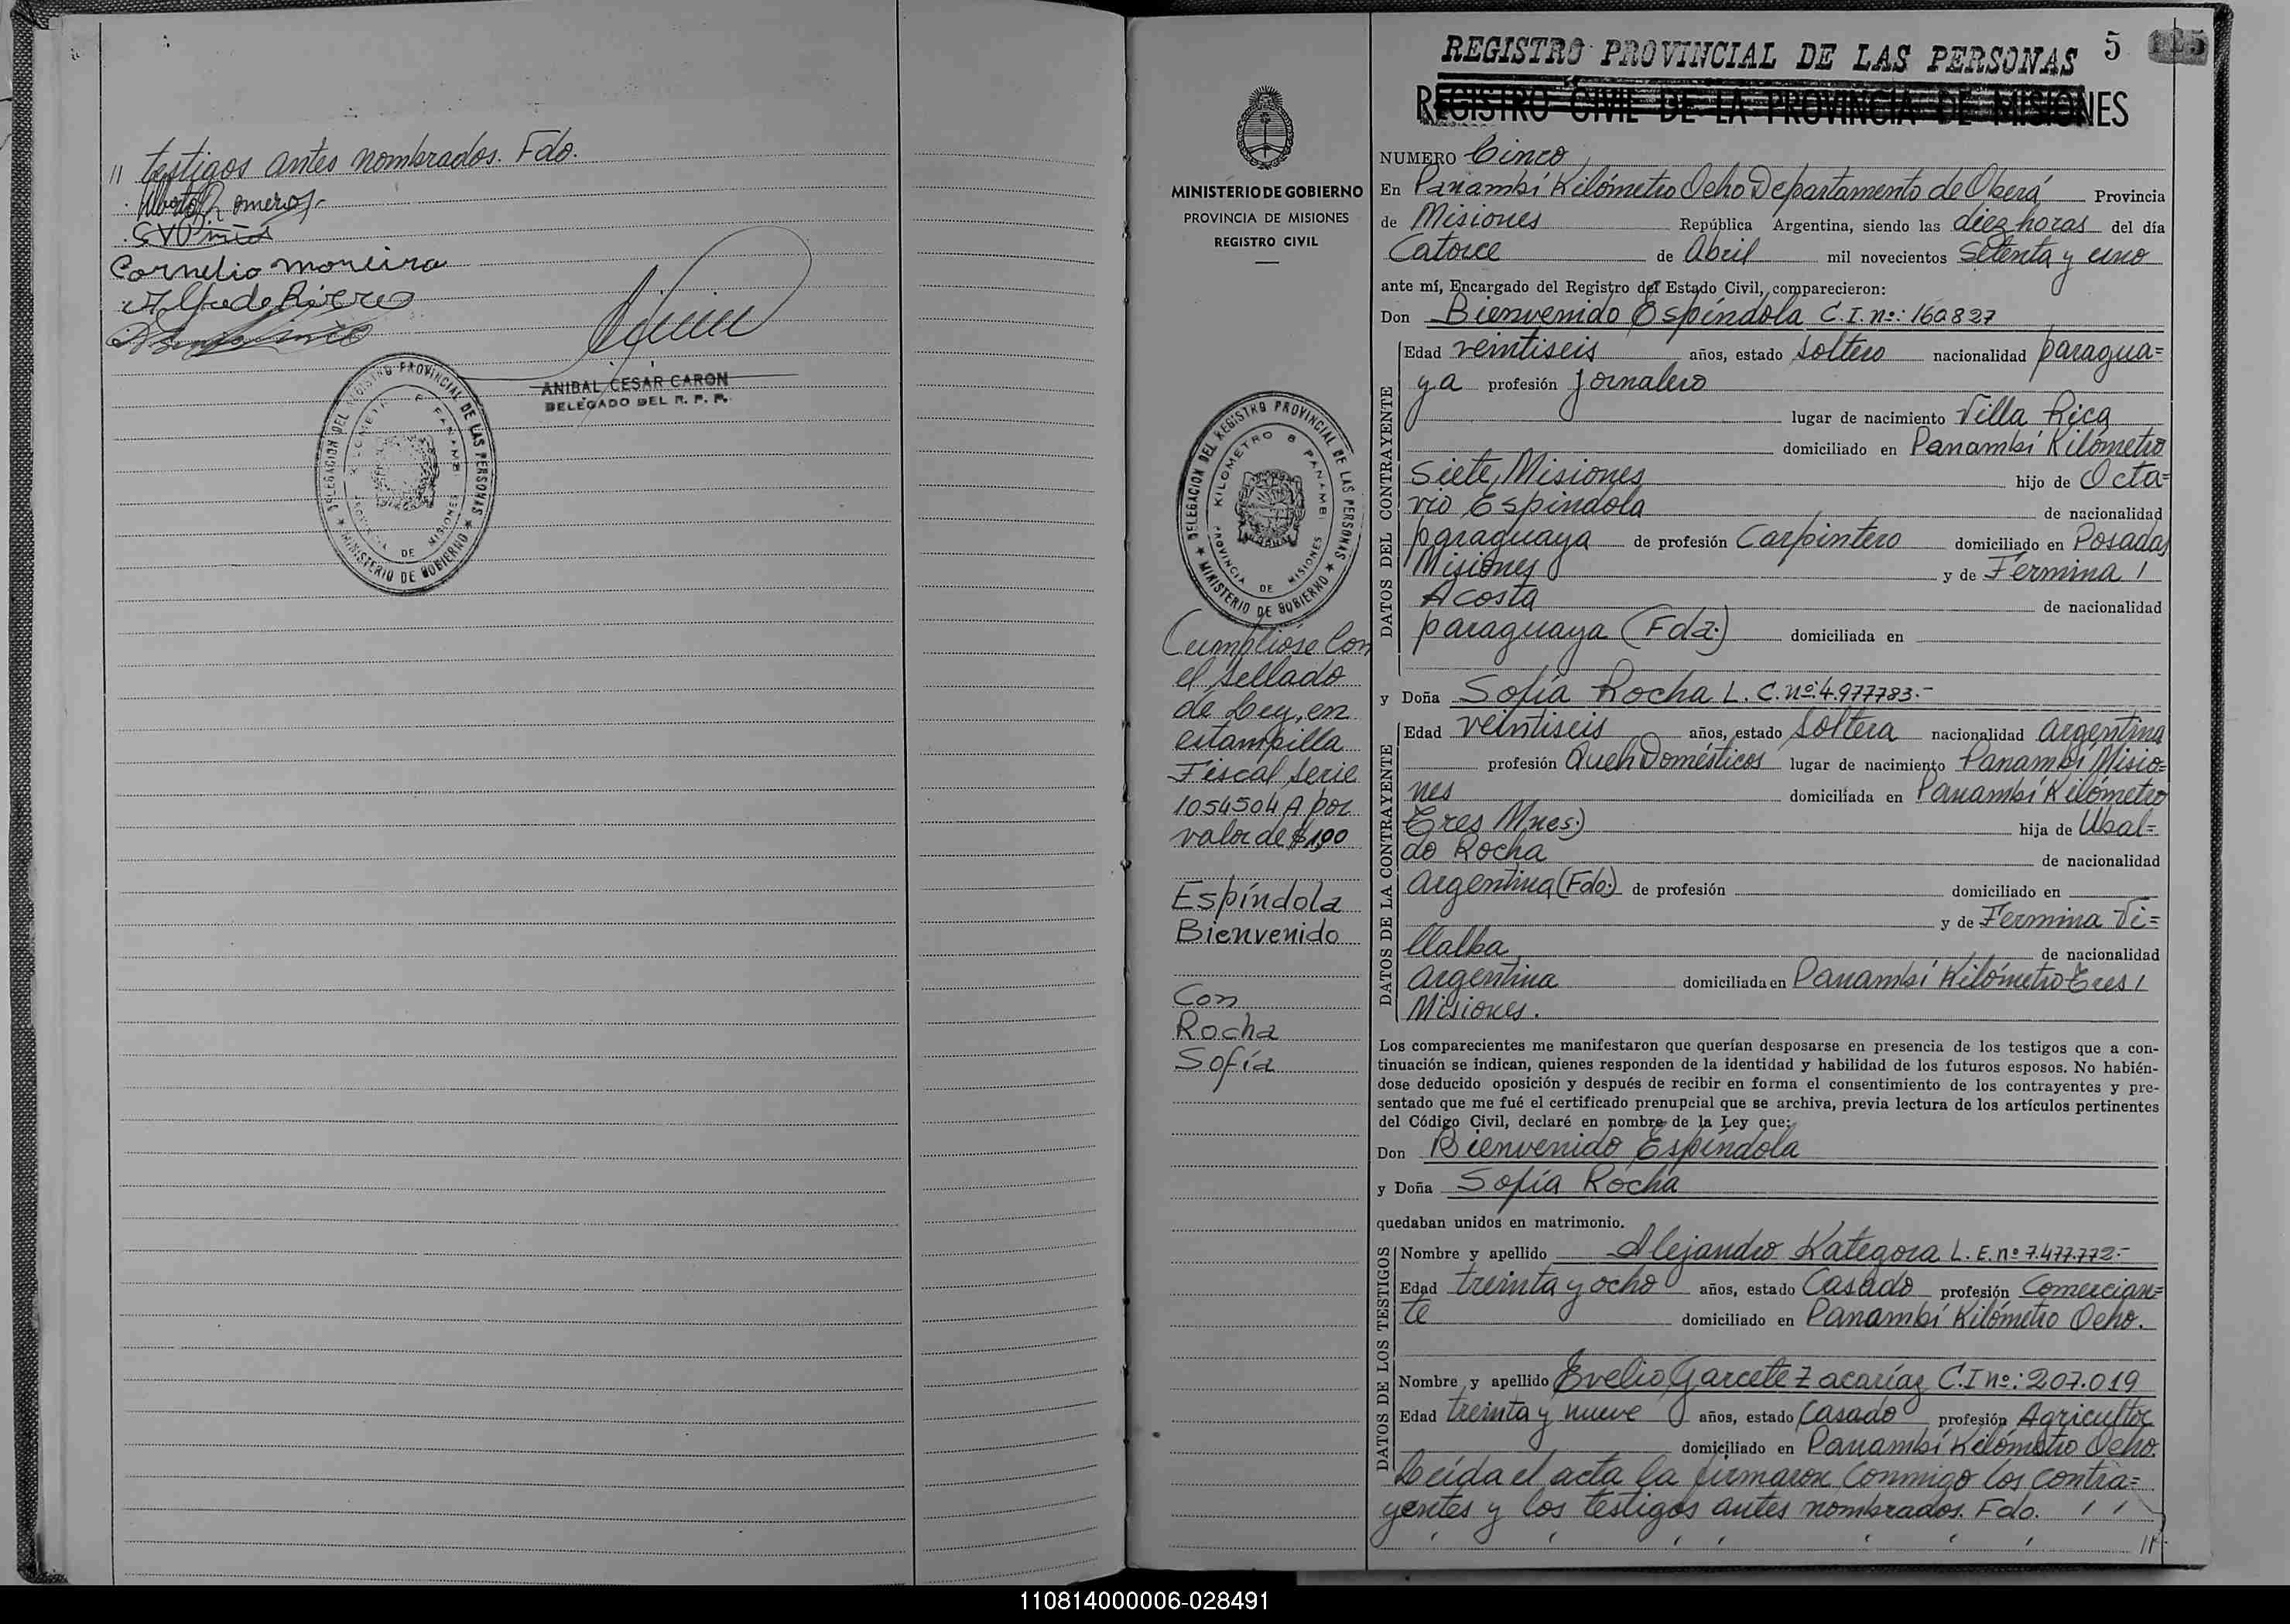 " testigos antes nombrados. Fdo.
Cornelio Moreira
ANIBAL CESAR CARON
DELEGADO DEL R. P. P.
DELEGACION DEL REGISTRO PROVINCIAL DE LAS PERSONAS
KILOMETRO 8 PANAMBI
PROVINCIA DE MISIONES
★ MINISTERIO DE GOBIERNO ★
MINISTERIO DE GOBIERNO
PROVINCIA DE MISIONES
REGISTRO CIVIL
DELEGACION DEL REGISTRO PROVINCIAL DE LAS PERSONAS
KILOMETRO 8 PANAMBI
PROVINCIA DE MISIONES
★ MINISTERIO DE GOBIERNO ★
Cumplióse Con
el sellado
de Ley, en
estampilla
Fiscal Serie
1054504 A por
valor de $ 1,90
Espíndola
Bienvenido
Con
Rocha
Sofía
REGISTRO PROVINCIAL DE LAS PERSONAS 5
REGISTRO CIVIL DE LA PROVINCIA DE MISIONES
NUMERO Cinco
En Panambí Kilómetro Ocho Departamento de Oberá Provincia
de Misiones República Argentina, siendo las diez horas del día
Catorce de Abril mil novecientos Setenta y uno
ante mí, Encargado del Registro del Estado Civil, comparecieron:
Don Bienvenido Espíndola C.I. nº: 160827
DATOS DEL CONTRAYENTE
Edad veintiseis años, estado Soltero nacionalidad paragua=
ya profesión Jornalero
lugar de nacimiento Villa Rica
domiciliado en Panambí Kilómetro
Siete, Misiones hijo de Octa=
vio Espíndola de nacionalidad
paraguaya de profesión Carpintero domiciliado en Posadas
Misiones y de Fermina
Acosta de nacionalidad
paraguaya (Fda.) domiciliada en
y Doña Sofía Rocha L. C. nº: 4.977783.-
DATOS DE LA CONTRAYENTE
Edad veintiseis años, estado Soltera nacionalidad argentina
profesión Queh Domésticos lugar de nacimiento Panambí Misio=
nes domiciliada en Panambí Kilómetro
Tres Mnes.) hija de Ubal=
do Rocha de nacionalidad
argentina (Fdo.) de profesión domiciliado en
y de Fermina Vi=
llalba de nacionalidad
argentina domiciliada en Panambí Kilómetro Tres
Misiones.
Los comparecientes me manifestaron que querían desposarse en presencia de los testigos que a con-
tinuación se indican, quienes responden de la identidad y habilidad de los futuros esposos. No habién-
dose deducido oposición y después de recibir en forma el consentimiento de los contrayentes y pre-
sentado que me fué el certificado prenupcial que se archiva, previa lectura de los artículos pertinentes
del Código Civil, declaré en nombre de la Ley que:
Don Bienvenido Espíndola
y Doña Sofía Rocha
quedaban unidos en matrimonio.
DATOS DE LOS TESTIGOS
Nombre y apellido Alejandro Kategora L. E. nº 7.477.772.-
Edad treinta y ocho años, estado Casado profesión Comercian=
te domiciliado en Panambí Kilómetro Ocho.
Nombre y apellido Evelio Garcete Zacaríaz C.I nº: 207.019
Edad treinta y nueve años, estado Casado profesión Agricultor
domiciliado en Panambí Kilómetro Ocho.
Leída el acta la firmaron Conmigo los contra=
yentes y los testigos antes nombrados. Fdo.
110814000006-028491